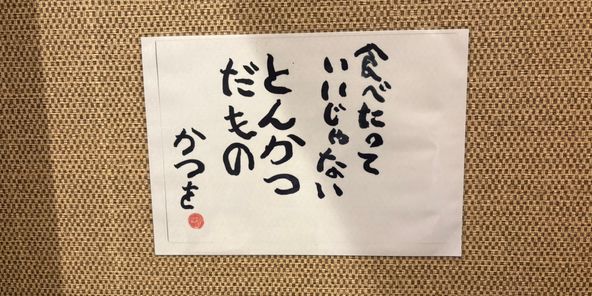 食べたって
いいじゃない
とんかつ
だもの
かつを